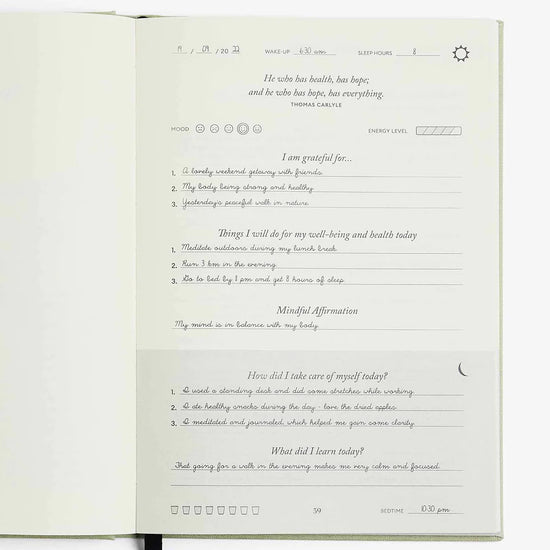 19 / 09 / 2022 WAKE-UP 6:30 am SLEEP HOURS 8
He who has health, has hope;
and he who has hope, has everything.
THOMAS CARLYLE
MOOD ENERGY LEVEL
I am grateful for...
1. A lovely weekend getaway with friends.
2. My body being strong and healthy.
3. Yesterday's peaceful walk in nature.
Things I will do for my well-being and health today
1. Meditate outdoors during my lunch break.
2. Run 3 km in the evening.
3. Go to bed by 11 pm and get 8 hours of sleep.
Mindful Affirmation
My mind is in balance with my body.
How did I take care of myself today?
1. I used a standing desk and did some stretches while working.
2. I ate healthy snacks during the day - love the dried apples.
3. I meditated and journaled, which helped me gain some clarity.
What did I learn today?
That going for a walk in the evening makes me very calm and focused.
59 BEDTIME 10:30 pm